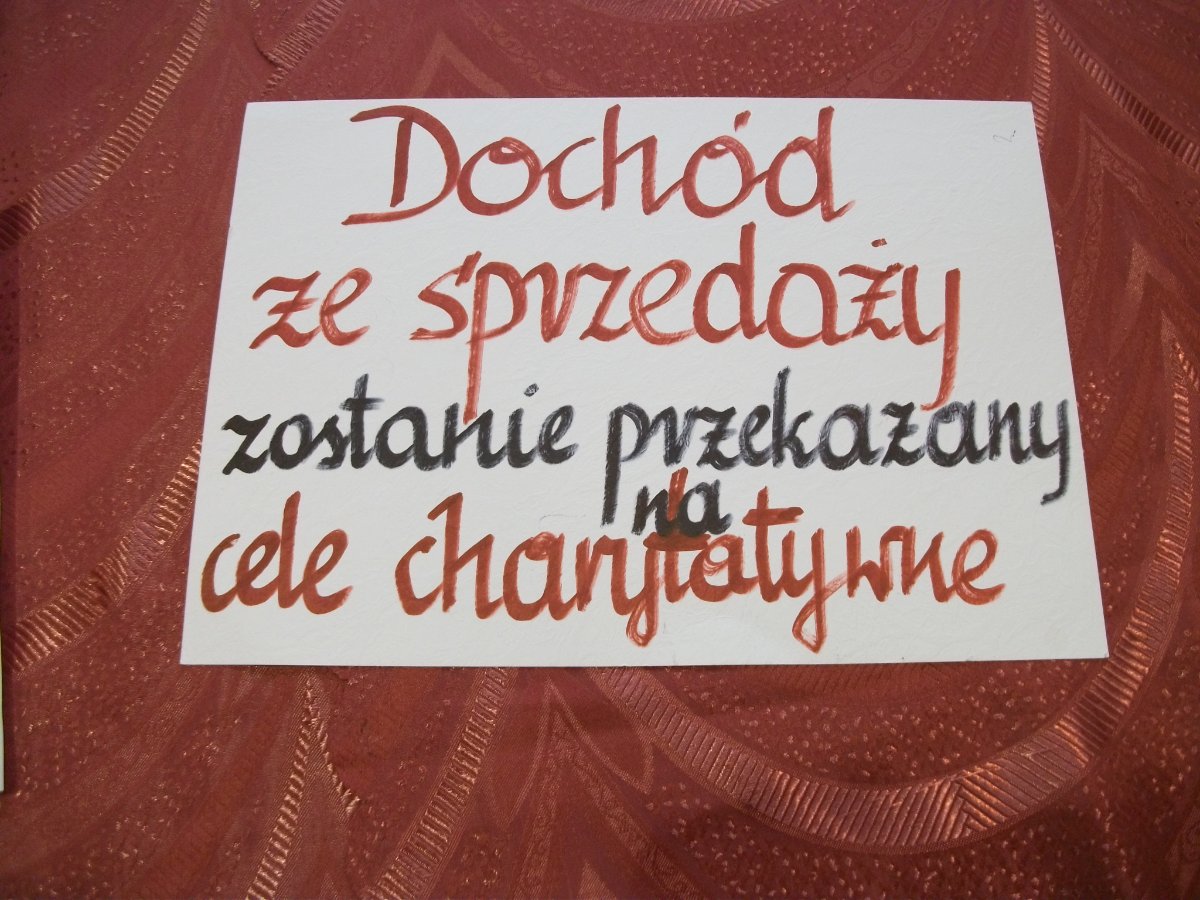 Dochód
ze sprzedaży
zostanie przekazany
na
cele charytatywne